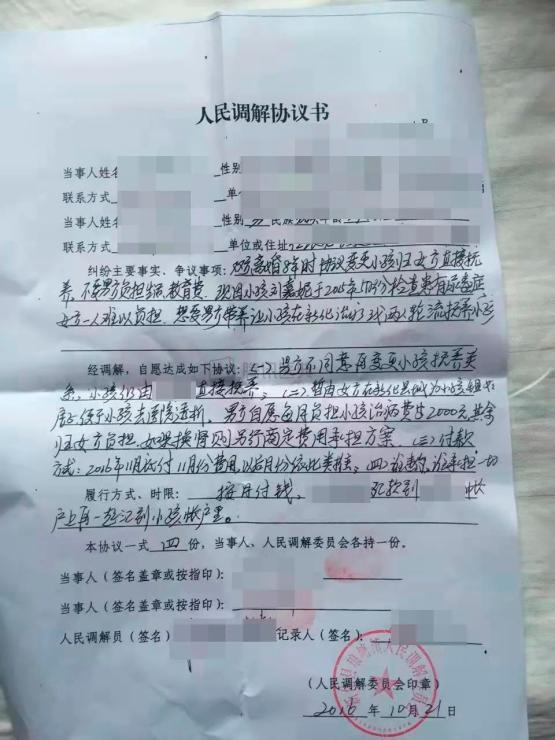 人民调解协议书
当事人姓名 性别
联系方式 单
当事人姓名 性别 男 民族
联系方式 单位或住址
纠纷主要事实、争议事项: 离婚 时协议变更小孩归女方直接抚
养,不要男方负担生活教育费,现因小孩刘嘉 于2015年 月份检查患有尿毒症
女方一人难以负担,想要男方 让小孩在新化治疗或两人轮流抚养小孩
经调解,自愿达成如下协议:(一)男方不同意再变更小孩抚养关
系,小孩仍由 直接抚养。(二)暂由女方在新化县城为小孩租房
居住便于小孩去医院透析。男方自愿每月负担小孩治病费生2000元其余
归女方负担,如果换肾则另行商定费用承担方案。(三)付款
方式:2016年11月底付11月份费用,以后月份依此类推。(四) 承担一切
履行方式、时限: 按月付钱, 账
户上再一起汇到小孩帐户里。
本协议一式 四 份,当事人、人民调解委员会各持一份。
当事人(签名盖章或按指印):
当事人(签名盖章或按指印):
人民调解员(签名) 记录人(签名):
人民调解委员会
(人民调解委员会印章)
2016 年 10 月 21 日